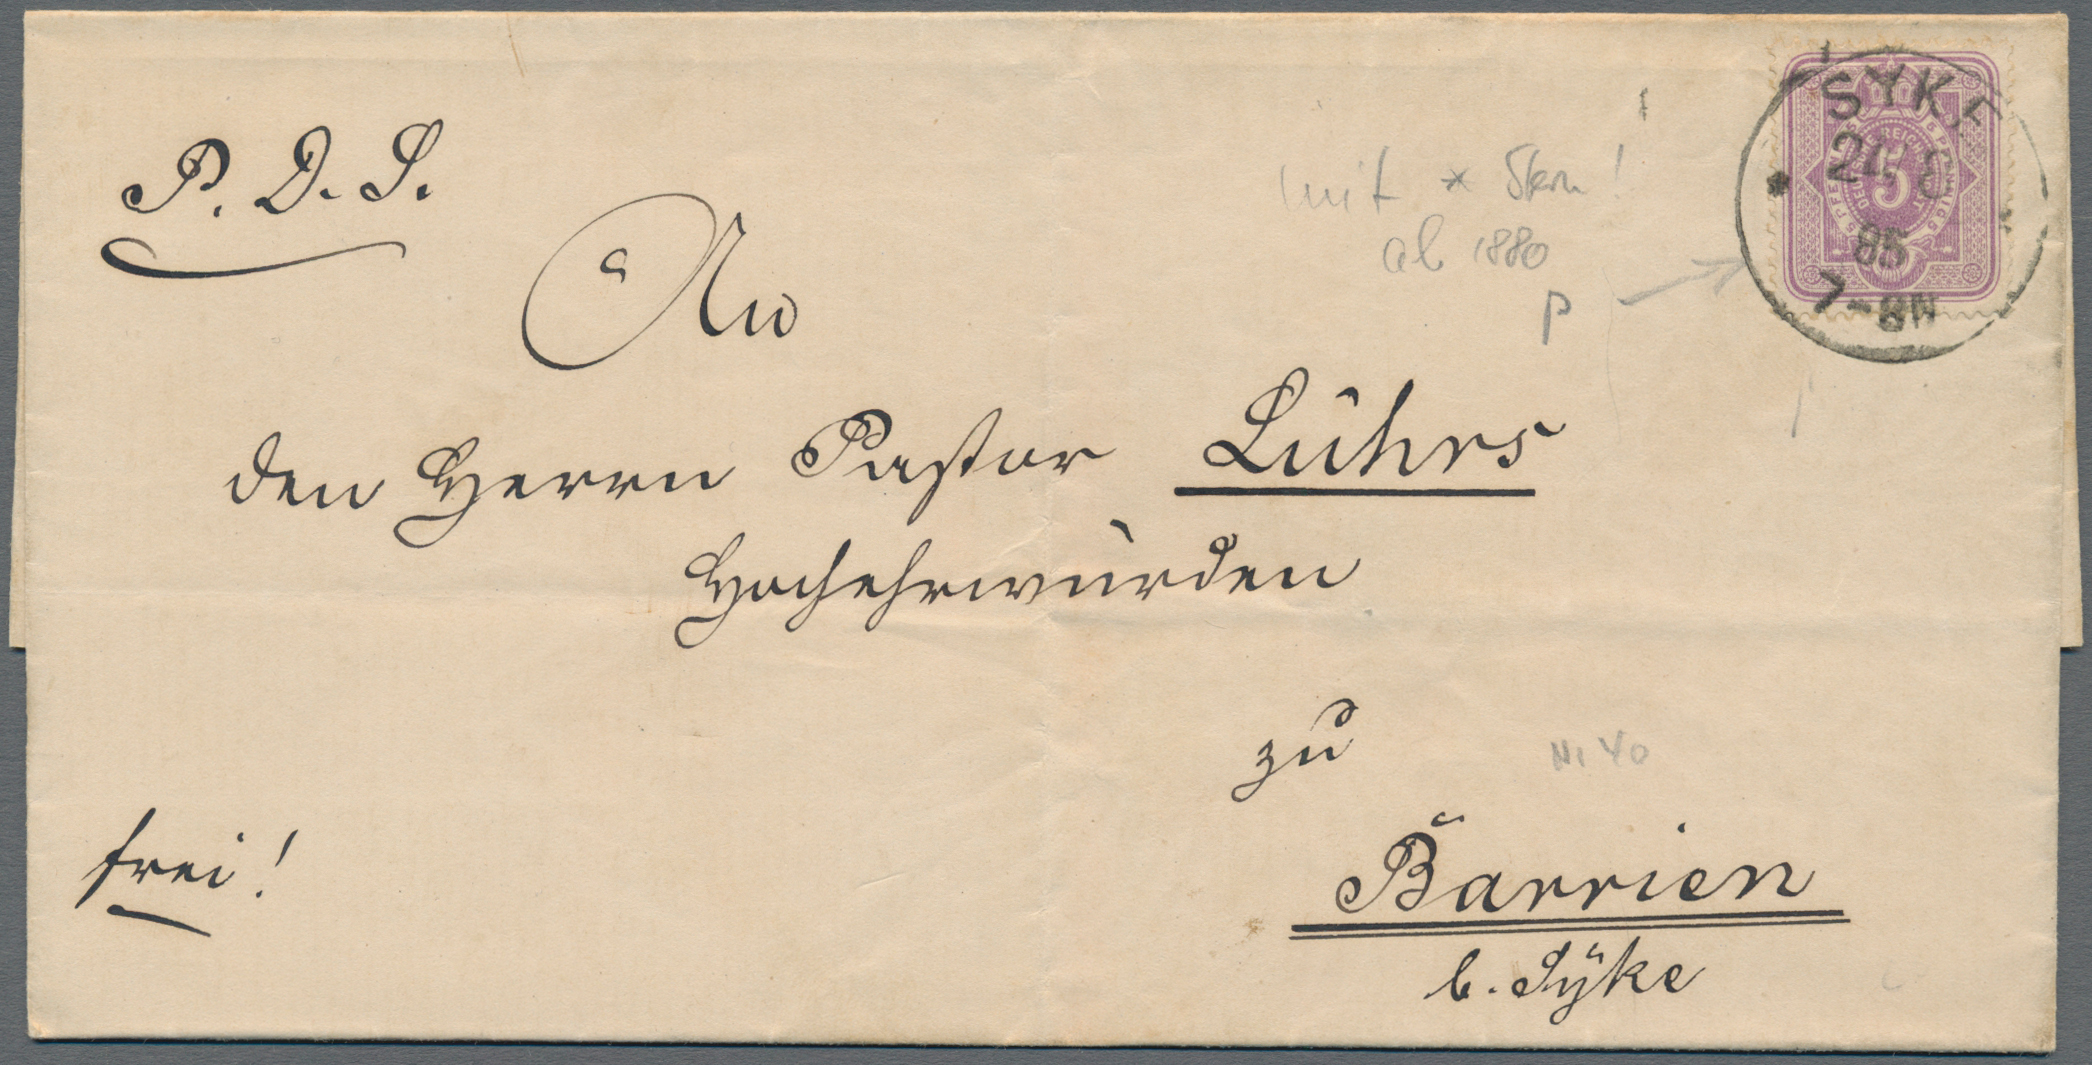 P. D. S.
SYKE
24 8
85
7-8N
5 PFENNIG
DEUTSCHE REICHS-POST
5
5 PFENNIG
mit * Stern!
ab 1880
p
An
den Herrn Pastor Lührs
Hochehrwürden
zu
Ni 40
frei!
Barrien
b. Syke